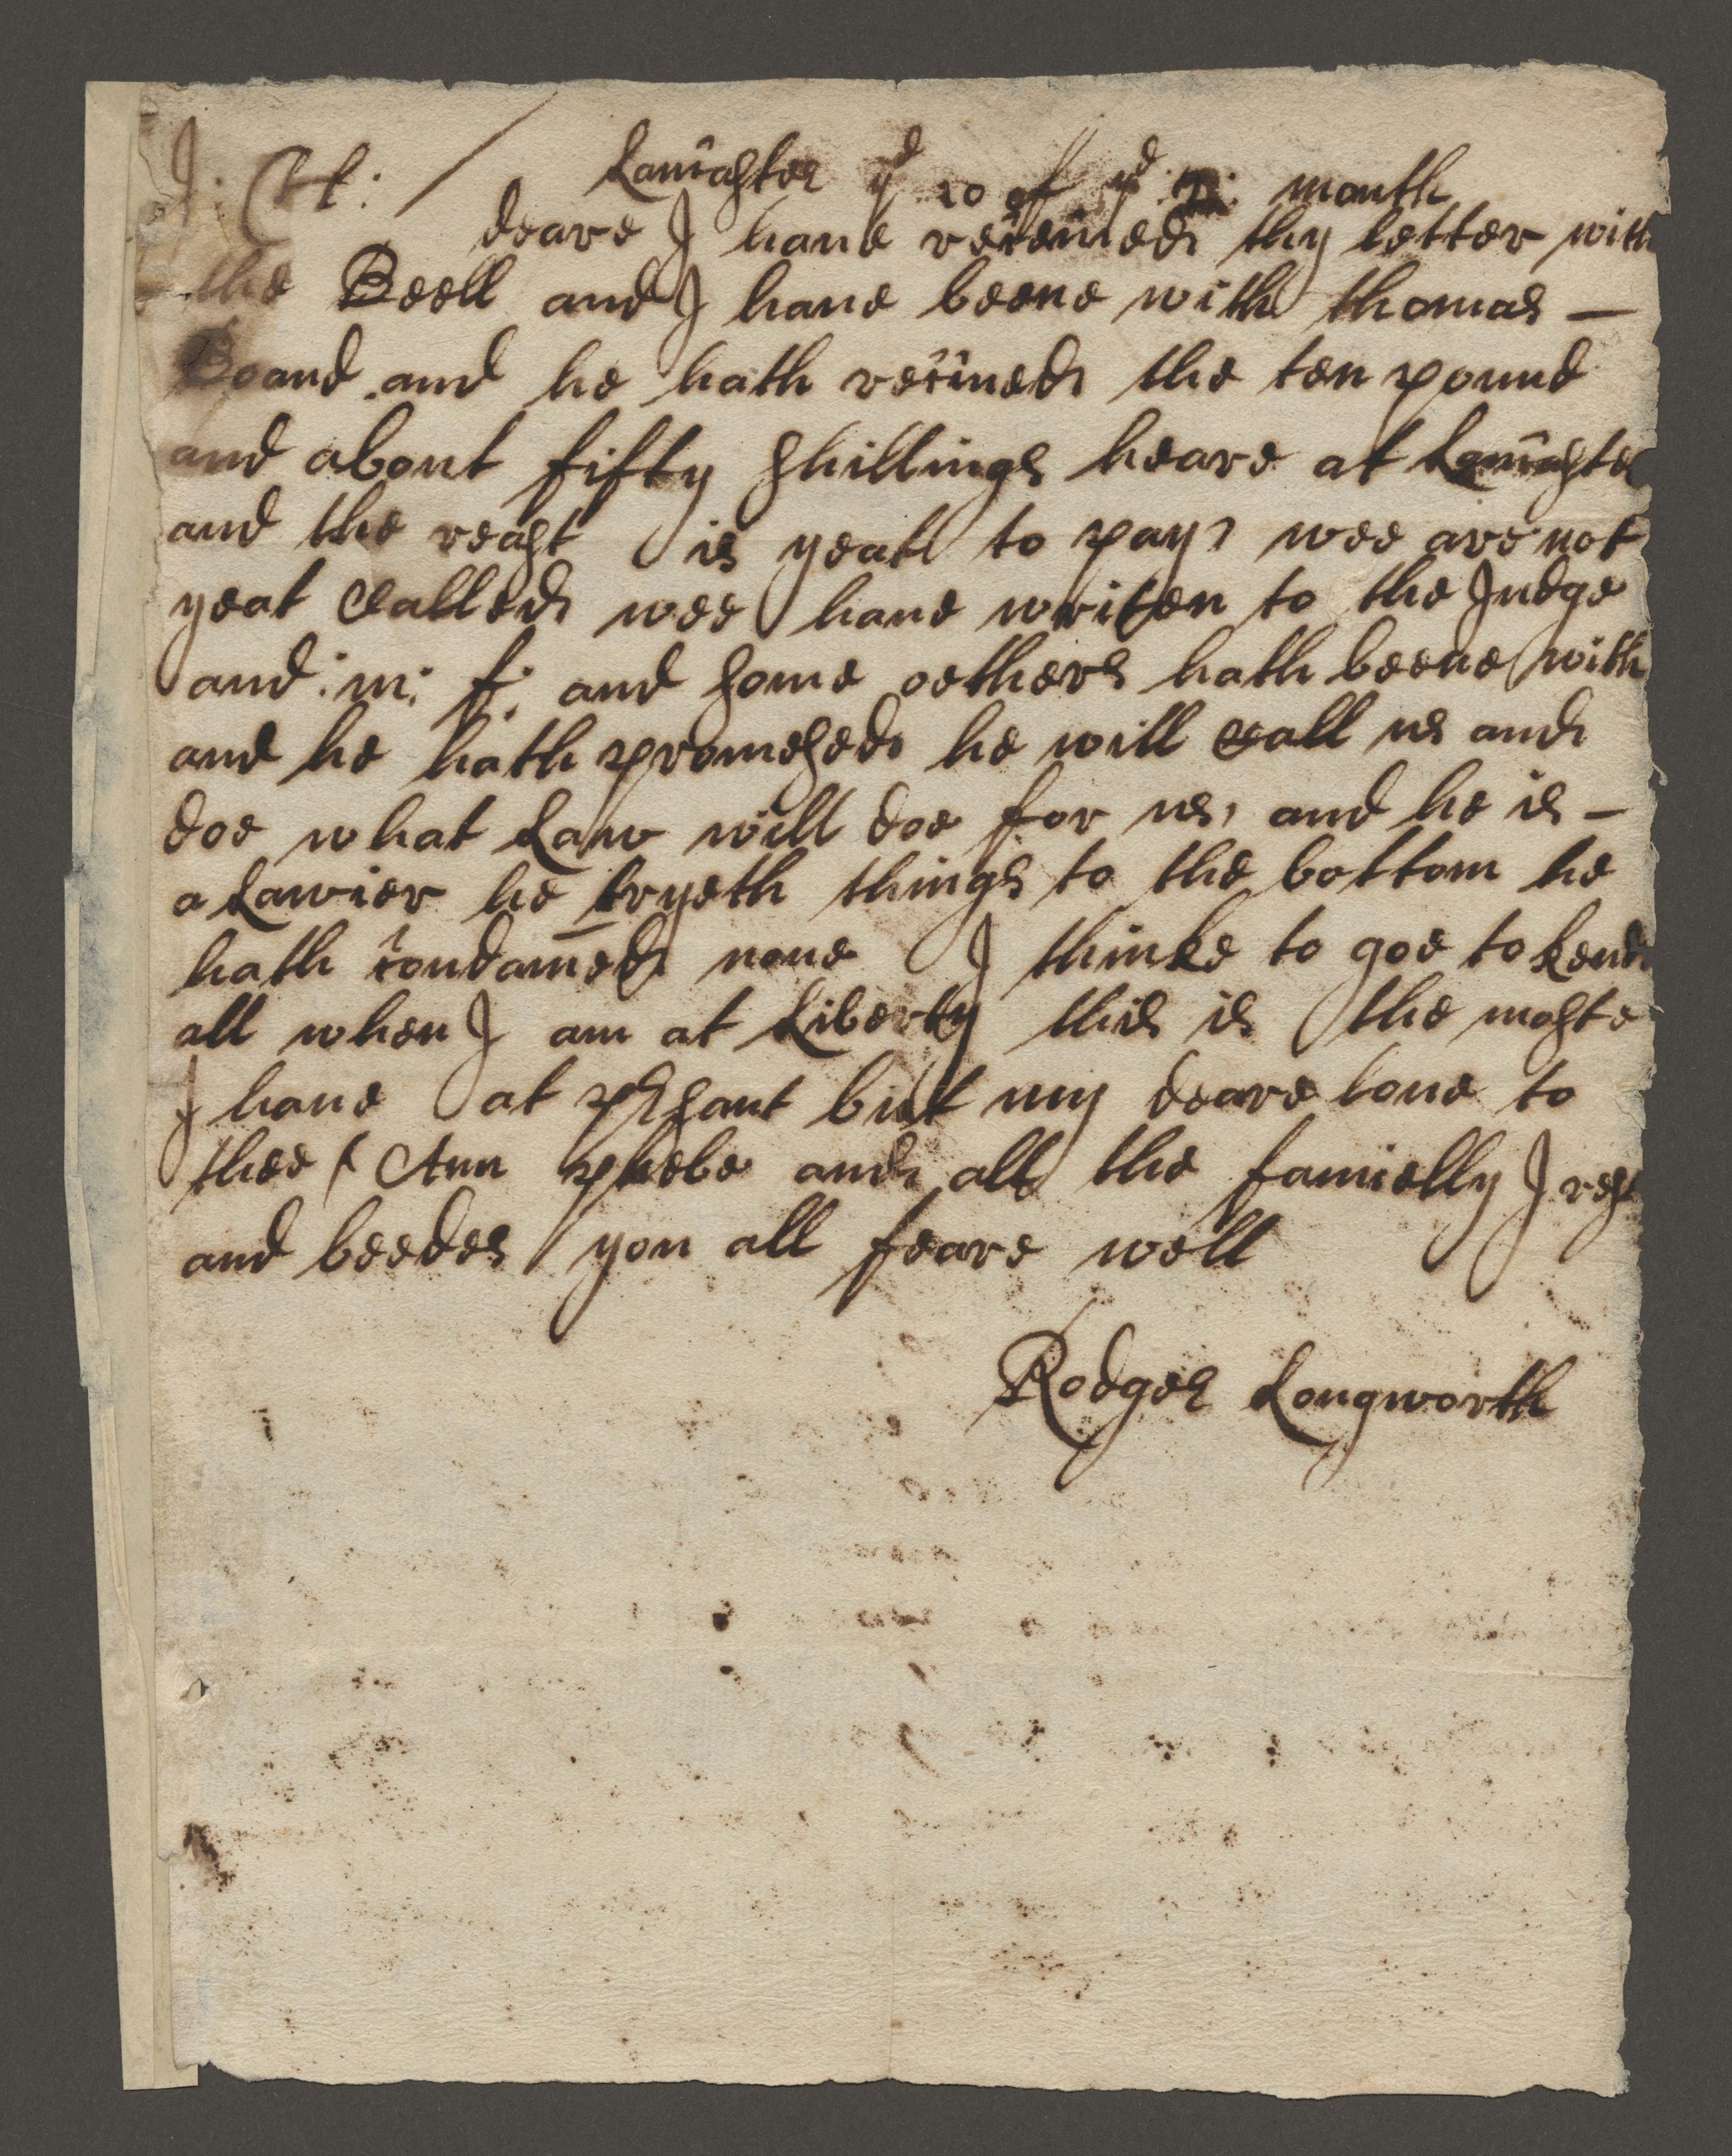 J: Ch: Lancaster ye 10 of ye month
deare J haue receiued thy letter with
the Beell and J haue beene with thomas -
Boand and he hath reciued the ten pound
and about fifty shillings heare at Lancaster
and the reast is yeat to pay, wee are not
yeat Called wee haue writen to the Judge
and : m: f: and some oethers hath beene with
and he hath promesed he will Call us and
doe what Law will doe for us, and he is -
a Lawier he tryeth things to the bottom he
hath condamed none J thinke to goe to Kend
all when J am at Liberty this is the moste
J haue at presant but my deare loue to
thee & Ann phebe and all the famielly J rest
and beedes you all feare well
Rodger Longworth